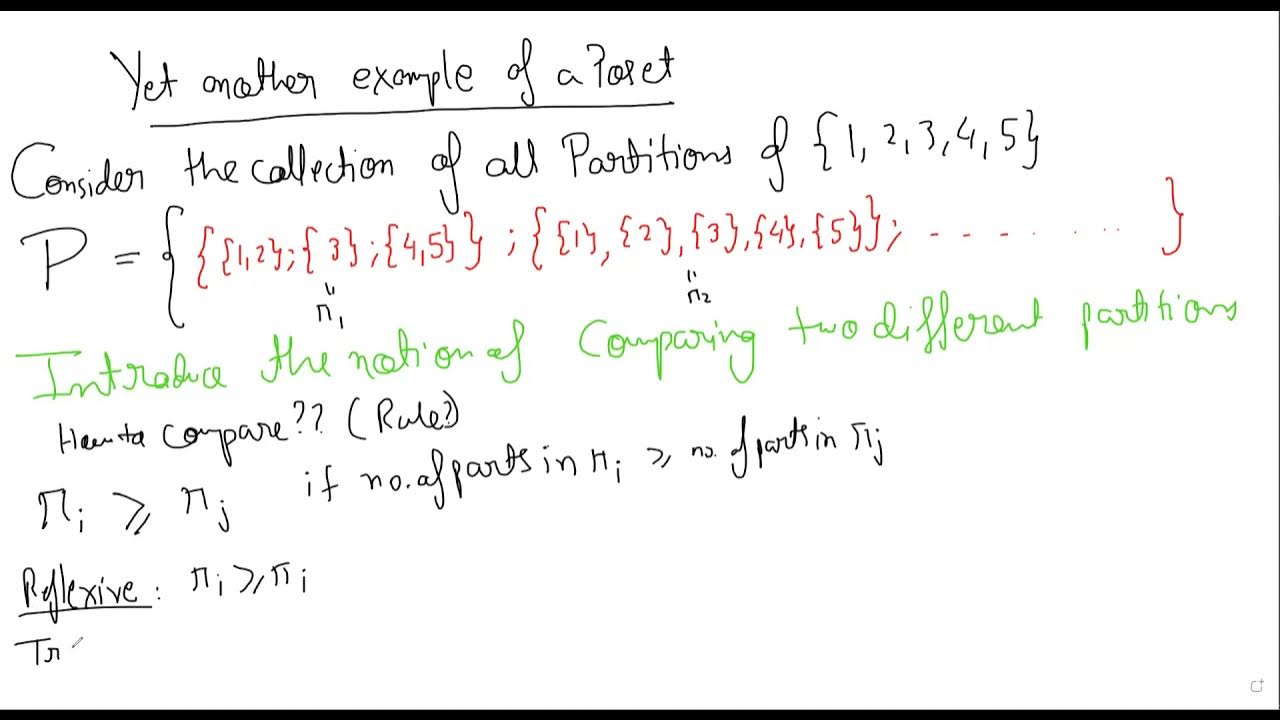 Yet another example of a Poset
Consider the collection of all Partitions of {1, 2, 3, 4, 5}
P = { {{1,2};{3};{4,5}} ; {{1}, {2}, {3}, {4}, {5}}; - - - - · · · · }
π₁ " π₂ "
Introduce the notion of Comparing two different partitions
How to compare?? (Rule?)
πᵢ ≥ πⱼ if no. of parts in πᵢ ≥ no. of parts in πⱼ
Reflexive: πᵢ ≥ πᵢ
Tr